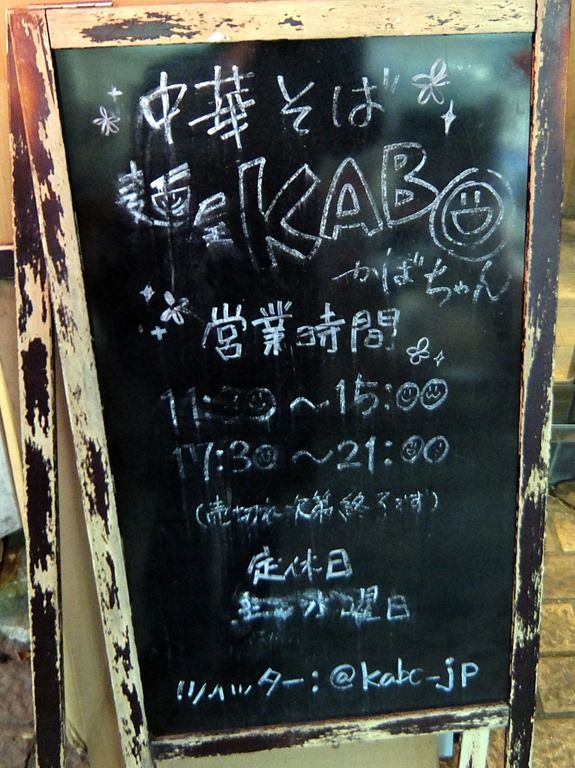 中華そば
麺屋KABO
かばちゃん
営業時間
11:30〜15:00
17:30〜21:00
(売切れ次第終了です)
定休日
水曜日
ツイッター:@kabo_jp